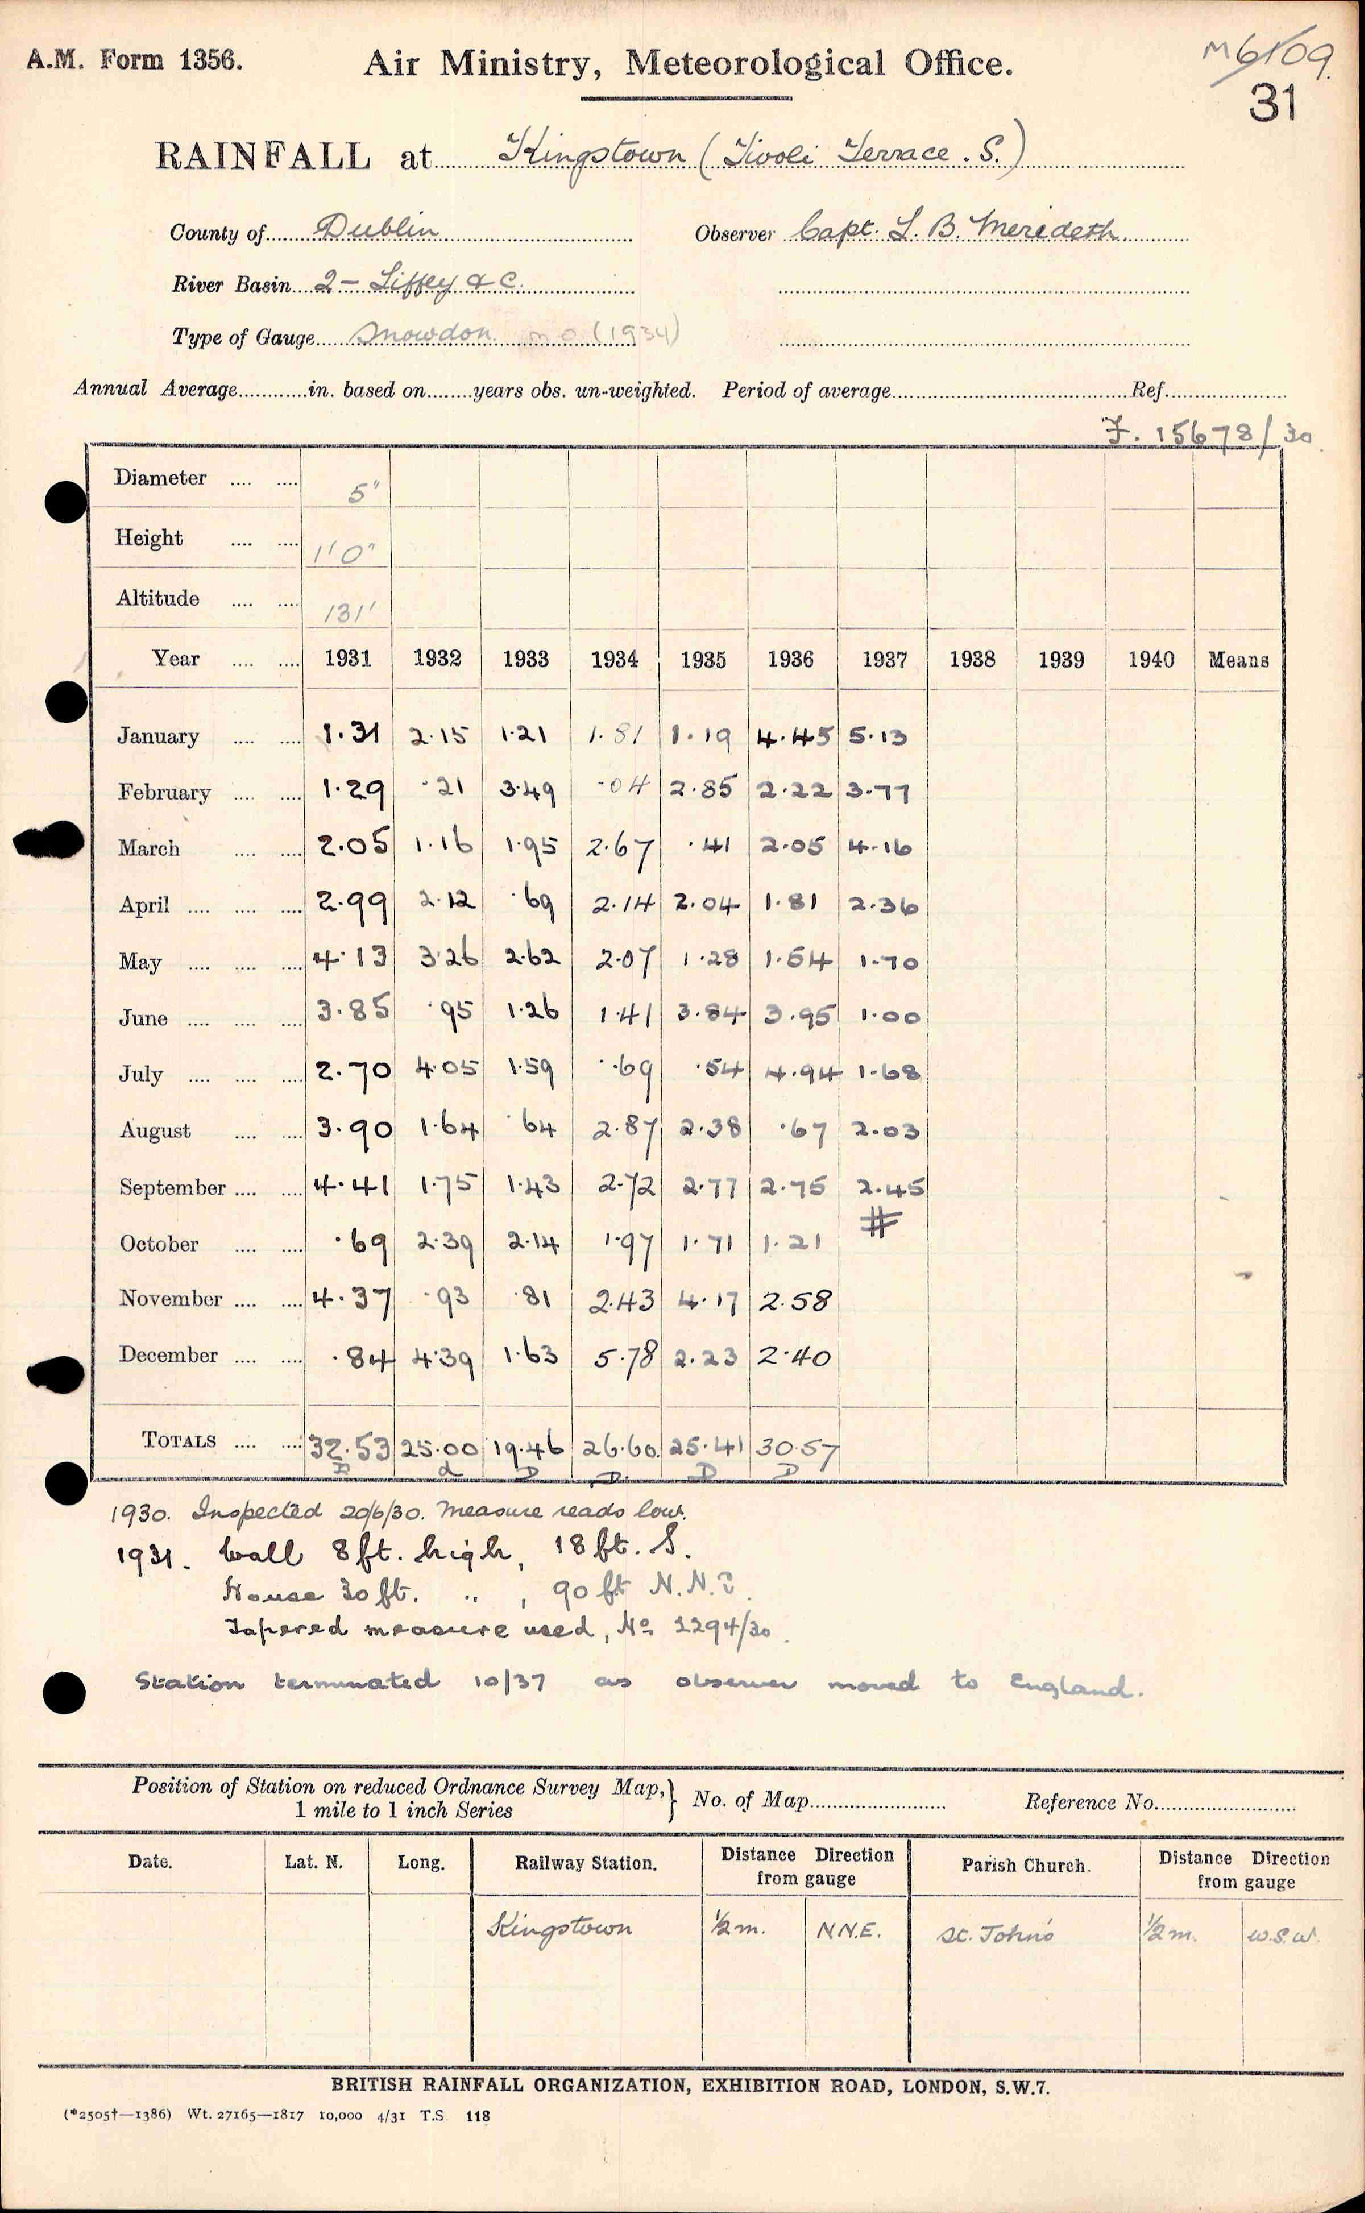 A.M. Form 1356.
Air Ministry, Meteorological Office.
M6109.
31
RAINFALL at Kingstown (Tivoli Terrace. S.)
County of Dublin
Observer Capt. L. B. Merideth
River Basin 2 - Liffey & C.
Type of Gauge Snowdon M O (1934)
Annual Average............in. based on........years obs. un-weighted. Period of average........................Ref...............
F. 15678/30
Diameter .... .... 5"
Height .... .... 1'0"
Altitude .... .... 131'
Year .... .... 1931 1932 1933 1934 1935 1936 1937 1938 1939 1940 Means
January .... .... 1.31 2.15 1.21 1.81 1.19 4.45 5.13
February .... .... 1.29 .21 3.49 .04 2.85 2.22 3.77
March .... .... 2.05 1.16 1.95 2.67 .41 2.05 4.16
April .... .... .... 2.99 2.12 .69 2.14 2.04 1.81 2.36
May .... .... .... 4.13 3.26 2.62 2.07 1.28 1.54 1.70
June .... .... .... 3.85 .95 1.26 1.41 3.84 3.95 1.00
July .... .... .... 2.70 4.05 1.59 .69 .54 4.94 1.68
August .... .... 3.90 1.64 .64 2.87 2.38 .67 2.03
September .... .... 4.41 1.75 1.43 2.72 2.77 2.75 2.45
October .... .... .69 2.39 2.14 1.97 1.71 1.21 #
November .... .... 4.37 .93 .81 2.43 4.17 2.58
December .... .... .84 4.39 1.63 5.78 2.23 2.40
TOTALS .... .... 32.53 25.00 19.46 26.60 25.41 30.57
D D D D D
1930. Inspected 20/6/30. Measure reads low.
1931. Wall 8 ft. high, 18 ft. S.
House 30 ft. " , 90 ft N.N.E.
Tapered measure used, No. 2294/30.
Station terminated 10/37 as observer moved to England.
Position of Station on reduced Ordnance Survey Map, } No. of Map........................ Reference No.........................
1 mile to 1 inch Series
Date. Lat. N. Long. Railway Station. Distance from gauge Direction Parish Church. Distance from gauge Direction
Kingstown 1/2 m. N.N.E. St. John's 1/2 m. W.S.W.
BRITISH RAINFALL ORGANIZATION, EXHIBITION ROAD, LONDON, S.W.7.
(*2505†—1386) Wt. 27165—1817 10,000 4/31 T.S. 118